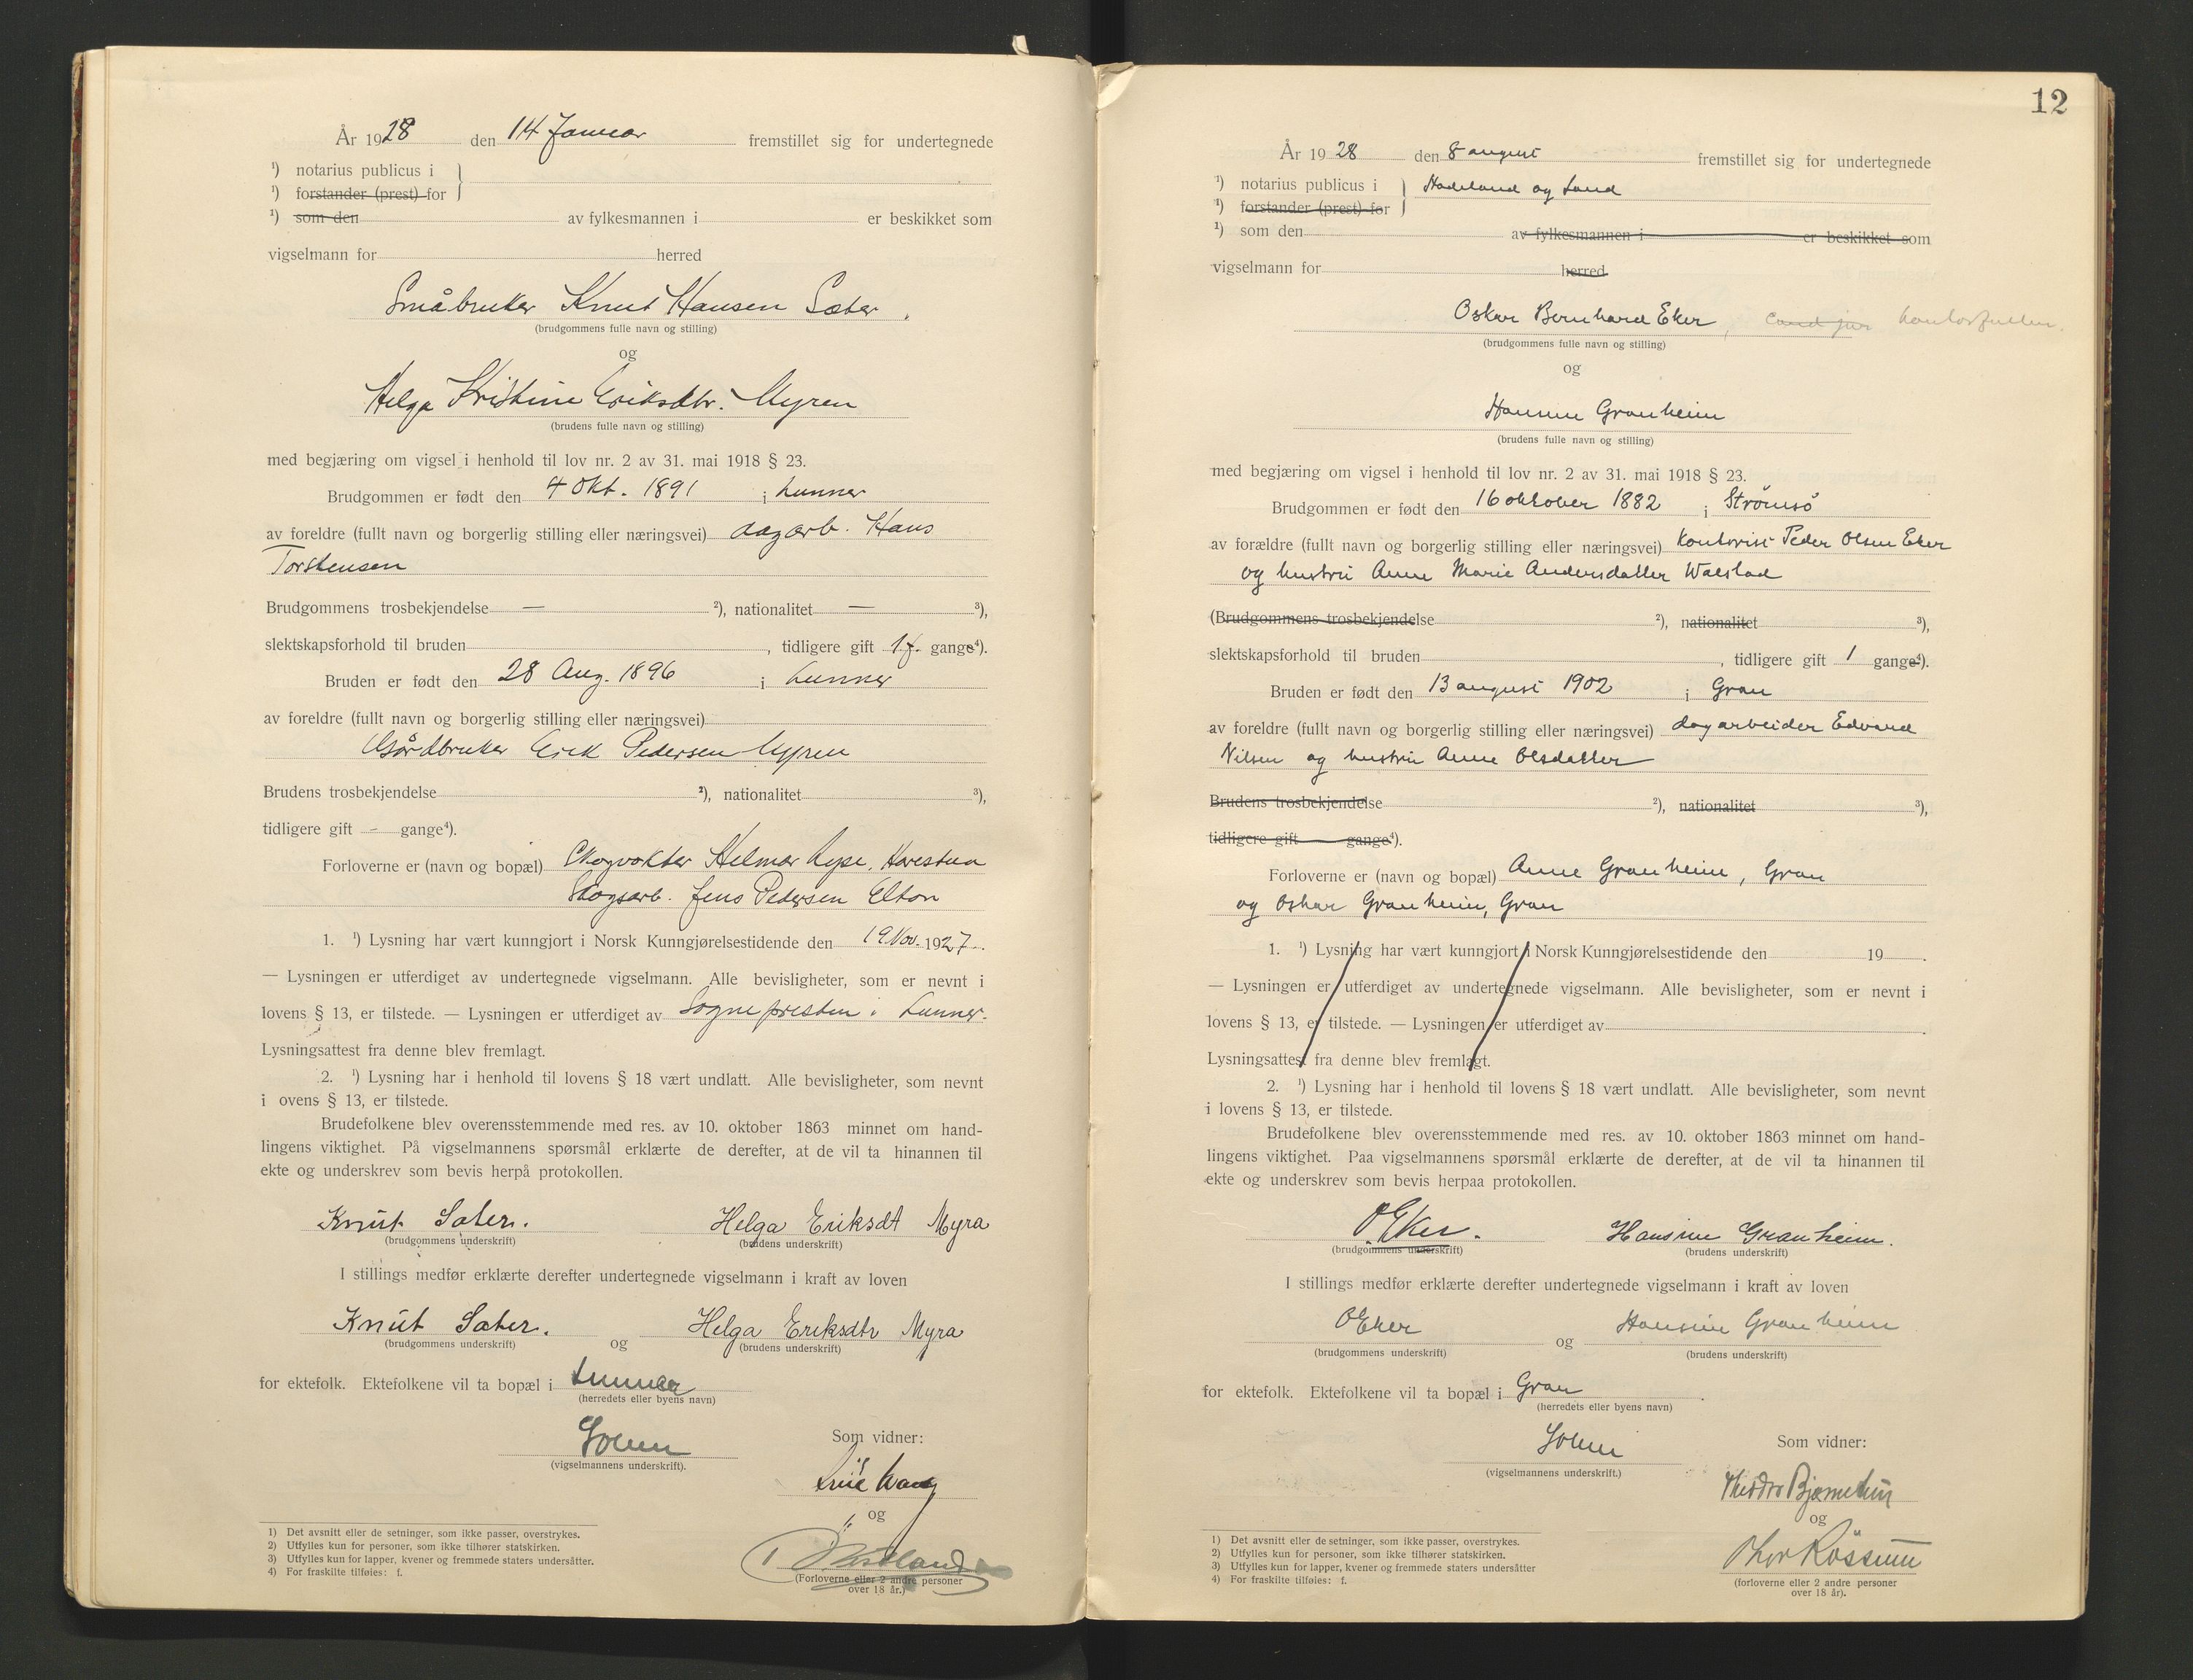 År 1928 den 14 Januar fremstillet sig for undertegnede
¹) notarius publicus i
¹) forstander (prest) for
¹) som den av fylkesmannen i er beskikket som
vigselmann for herred
Småbruker Knut Hansen Sæter.
(brudgommens fulle navn og stilling)
og
Helga Kristine Eriksdtr. Myren
(brudens fulle navn og stilling)
med begjæring om vigsel i henhold til lov nr. 2 av 31. mai 1918 § 23.
Brudgommen er født den 4 Okt. 1891 i Lunner
av foreldre (fullt navn og borgerlig stilling eller næringsvei) dagarb. Hans
Torstensen
Brudgommens trosbekjendelse — ²), nationalitet — ³),
slektskapsforhold til bruden , tidligere gift 1 f. gange⁴).
Bruden er født den 28 Aug. 1896 i Lunner
av foreldre (fullt navn og borgerlig stilling eller næringsvei)
Gårdbruker Erik Pedersen Myren
Brudens trosbekjendelse ²), nationalitet ³),
tidligere gift - gange⁴).
Forloverne er (navn og bopæl) Skogvokter Helmar Lyse, Harestua
Skogsarb. Jens Pedersen Elton
1. ¹) Lysning har vært kunngjort i Norsk Kunngjørelsestidende den 19 Nov. 1927.
— Lysningen er utferdiget av undertegnede vigselmann. Alle bevisligheter, som er nevnt i
lovens § 13, er tilstede. — Lysningen er utferdiget av Sognepresten i Lunner.
Lysningsattest fra denne blev fremlagt.
2. ¹) Lysning har i henhold til lovens § 18 vært undlatt. Alle bevisligheter, som nevnt
i ovens § 13, er tilstede.
Brudefolkene blev overensstemmende med res. av 10. oktober 1863 minnet om hand-
lingens viktighet. På vigselmannens spørsmål erklærte de derefter, at de vil ta hinannen til
ekte og underskrev som bevis herpå protokollen.
Knut Sæter. Helga Eriksdt Myra
(brudgommens underskrift) (brudens underskrift)
I stillings medfør erklærte derefter undertegnede vigselmann i kraft av loven
Knut Sæter. og Helga Eriksdtr Myra
(brudgommens underskrift) (brudens underskrift)
for ektefolk. Ektefolkene vil ta bopæl i Lunner
(herredets eller byens navn)
(vigselmannens underskrift).
Som vidner:
og
(Forloverne eller 2 andre personer
over 18 år.)
1) Det avsnitt eller de setninger, som ikke passer, overstrykes.
2) Utfylles kun for personer, som ikke tilhører statskirken.
3) Utfylles kun for lapper, kvener og fremmede staters undersåtter.
4) For fraskilte tilføies: f.
12
År 1928 den 8 august fremstillet sig for undertegnede
¹) notarius publicus i Hadeland og Land
¹) forstander (prest) for
¹) som den av fylkesmannen i er beskikket som
vigselmann for herred
Oskar Bernhard Eker, Cand jur kontorfullm.
(brudgommens fulle navn og stilling)
og
Hansine Granheim
(brudens fulle navn og stilling)
med begjæring om vigsel i henhold til lov nr. 2 av 31. mai 1918 § 23.
Brudgommen er født den 16 oktober 1882 i Strömsö
av forældre (fullt navn og borgerlig stilling eller næringsvei) Kontorist Peder Olsen Eker
og hustru Anne Marie Andersdatter Walstad
(Brudgommens trosbekjendelse ²), nationalitet ³),
slektskapsforhold til bruden , tidligere gift 1 gange⁴).
Bruden er født den 13 august 1902 i Gran
av foreldre (fullt navn og borgerlig stilling eller næringsvei) dagarbeider Edvard
Nilsen og hustru Anne Olsdatter
Brudens trosbekjendelse ²), nationalitet ³),
tidligere gift gange⁴).
Forloverne er (navn og bopæl) Anne Granheim, Gran
og Oskar Granheim, Gran
1. ¹) Lysning har vært kunngjort i Norsk Kunngjørelsestidende den 19 .
— Lysningen er utferdiget av undertegnede vigselmann. Alle bevisligheter, som er nevnt i
lovens § 13, er tilstede. — Lysningen er utferdiget av .
Lysningsattest fra denne blev fremlagt.
2. ¹) Lysning har i henhold til lovens § 18 vært undlatt. Alle bevisligheter, som nevnt
i lovens § 13, er tilstede.
Brudefolkene blev overensstemmende med res. av 10. oktober 1863 minnet om hand-
lingens viktighet. Paa vigselmannens spørsmål erklærte de derefter, at de vil ta hinannen til
ekte og underskrev som bevis herpaa protokollen.
O Eker. Hansine Granheim.
(brudgommens underskrift) (brudens underskrift)
I stillings medfør erklærte derefter undertegnede vigselmann i kraft av loven
O Eker og Hansine Granheim
(brudgommens underskrift) (brudens underskrift)
for ektefolk. Ektefolkene vil ta bopæl i Gran .
(herredets eller byens navn)
(vigselmannens underskrift.)
Som vidner:
og
Thor Rössum
(forloverne eller 2 andre personer
over 18 år).
1) Det avsnitt eller de setninger, som ikke passer, overstrykes.
2) Utfylles kun for personer, som ikke tilhører statskirken.
3) Utfylles kun for lapper, kvener og fremmede staters undersåtter
4) For fraskilte tilføies: f.